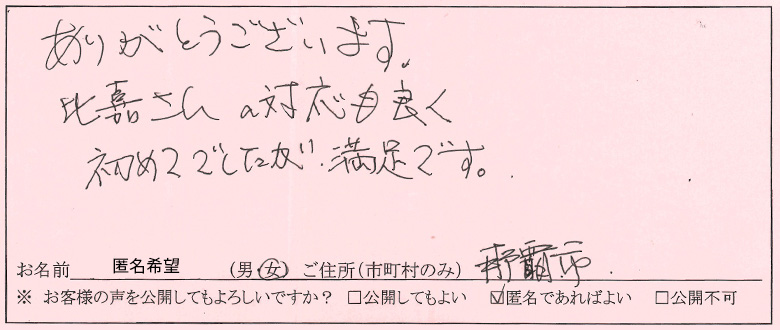 ありがとうございます。
比嘉さんの対応も良く
初めてでしたが、満足です。
お名前 匿名希望 (男・女) ご住所(市町村のみ) 那覇市
※ お客様の声を公開してもよろしいですか? □公開してもよい ☑匿名であればよい □公開不可